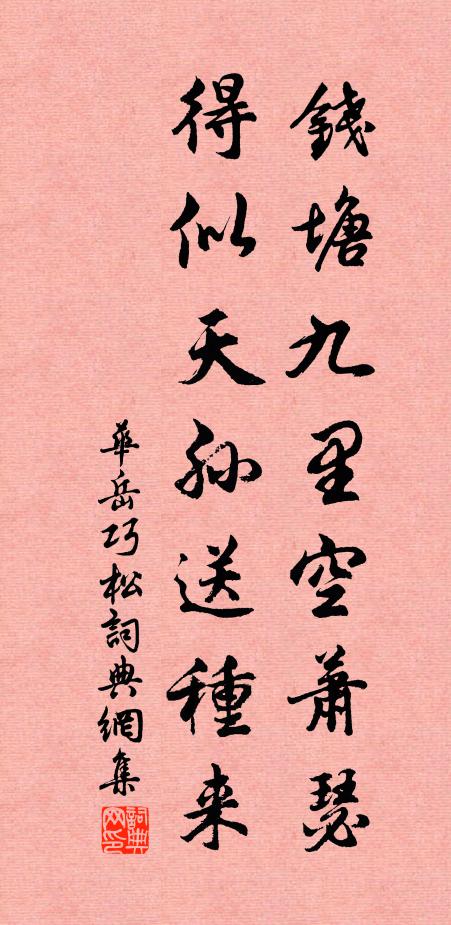 錢塘九里空蕭瑟
得似天孫送種来
華岳巧松詞典網集
詞典网印